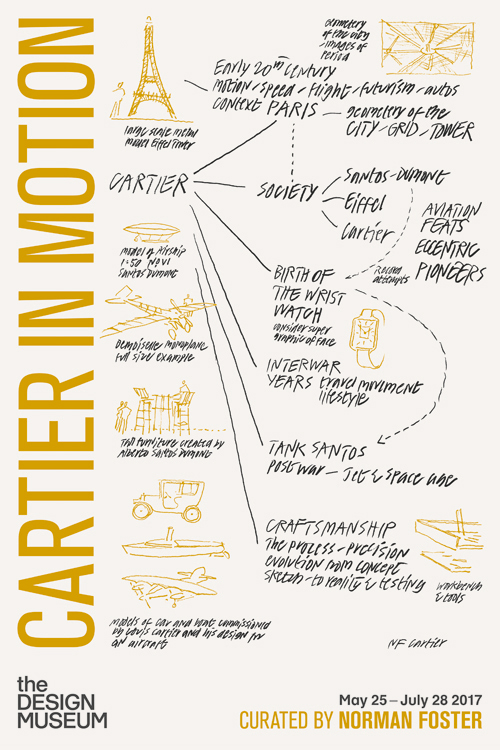 CARTIER IN MOTION
Geometery
of the city
-images of
period
Early 20th Century
motion/speed/flight/futurism/autos
context PARIS — geometery of the
CITY/GRID/TOWER
large scale metal
model Eiffel Tower
CARTIER
SOCIETY
Santos-Dumont
Eiffel
Cartier
AVIATION
FEATS
ECCENTRIC
PIONEERS
Record
attempts
model of Airship
1:50 No VI
Santos Dumont
BIRTH OF
THE WRIST
WATCH
consider super
graphic of face
Demoiselle monoplane
full size/example
INTERWAR
YEARS travel movement
lifestyle
Tall furniture created by
Alberto Santos Dumont
TANK SANTOS
postwar — Jet & Space age
CRAFTSMANSHIP
The process - precision
evolution from concept
sketch - to reality & testing
workbench
& tools
models of car and boat commissioned
by Louis Cartier and his design for
an aircraft
NF Cartier
the
DESIGN
MUSEUM
May 25 – July 28 2017
CURATED BY NORMAN FOSTER